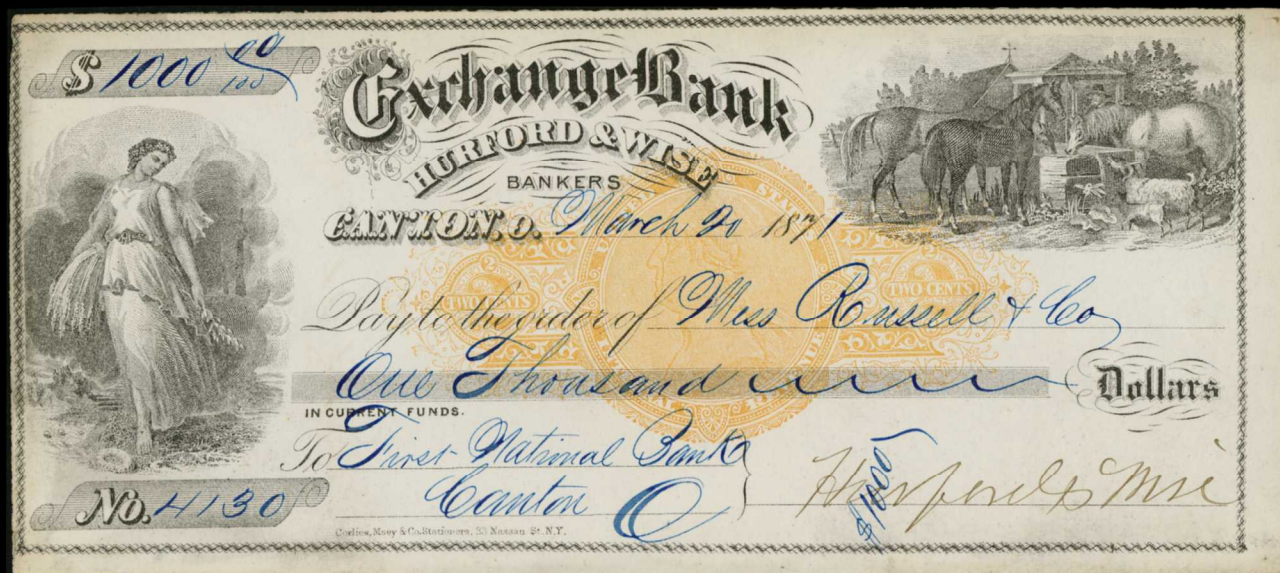 $ 1000 00/100
Exchange Bank
HURFORD & WISE
BANKERS
CANTON, O. March 20 1871
TWO CENTS TWO CENTS
Pay to the order of Mess Russell & Co
One Thousand Dollars
IN CURRENT FUNDS.
To First National Bank
Canton O
$1000
Hurford & Wise
No. 4130
Corlies, Macy & Co. Stationers, 33 Nassau St. N.Y.